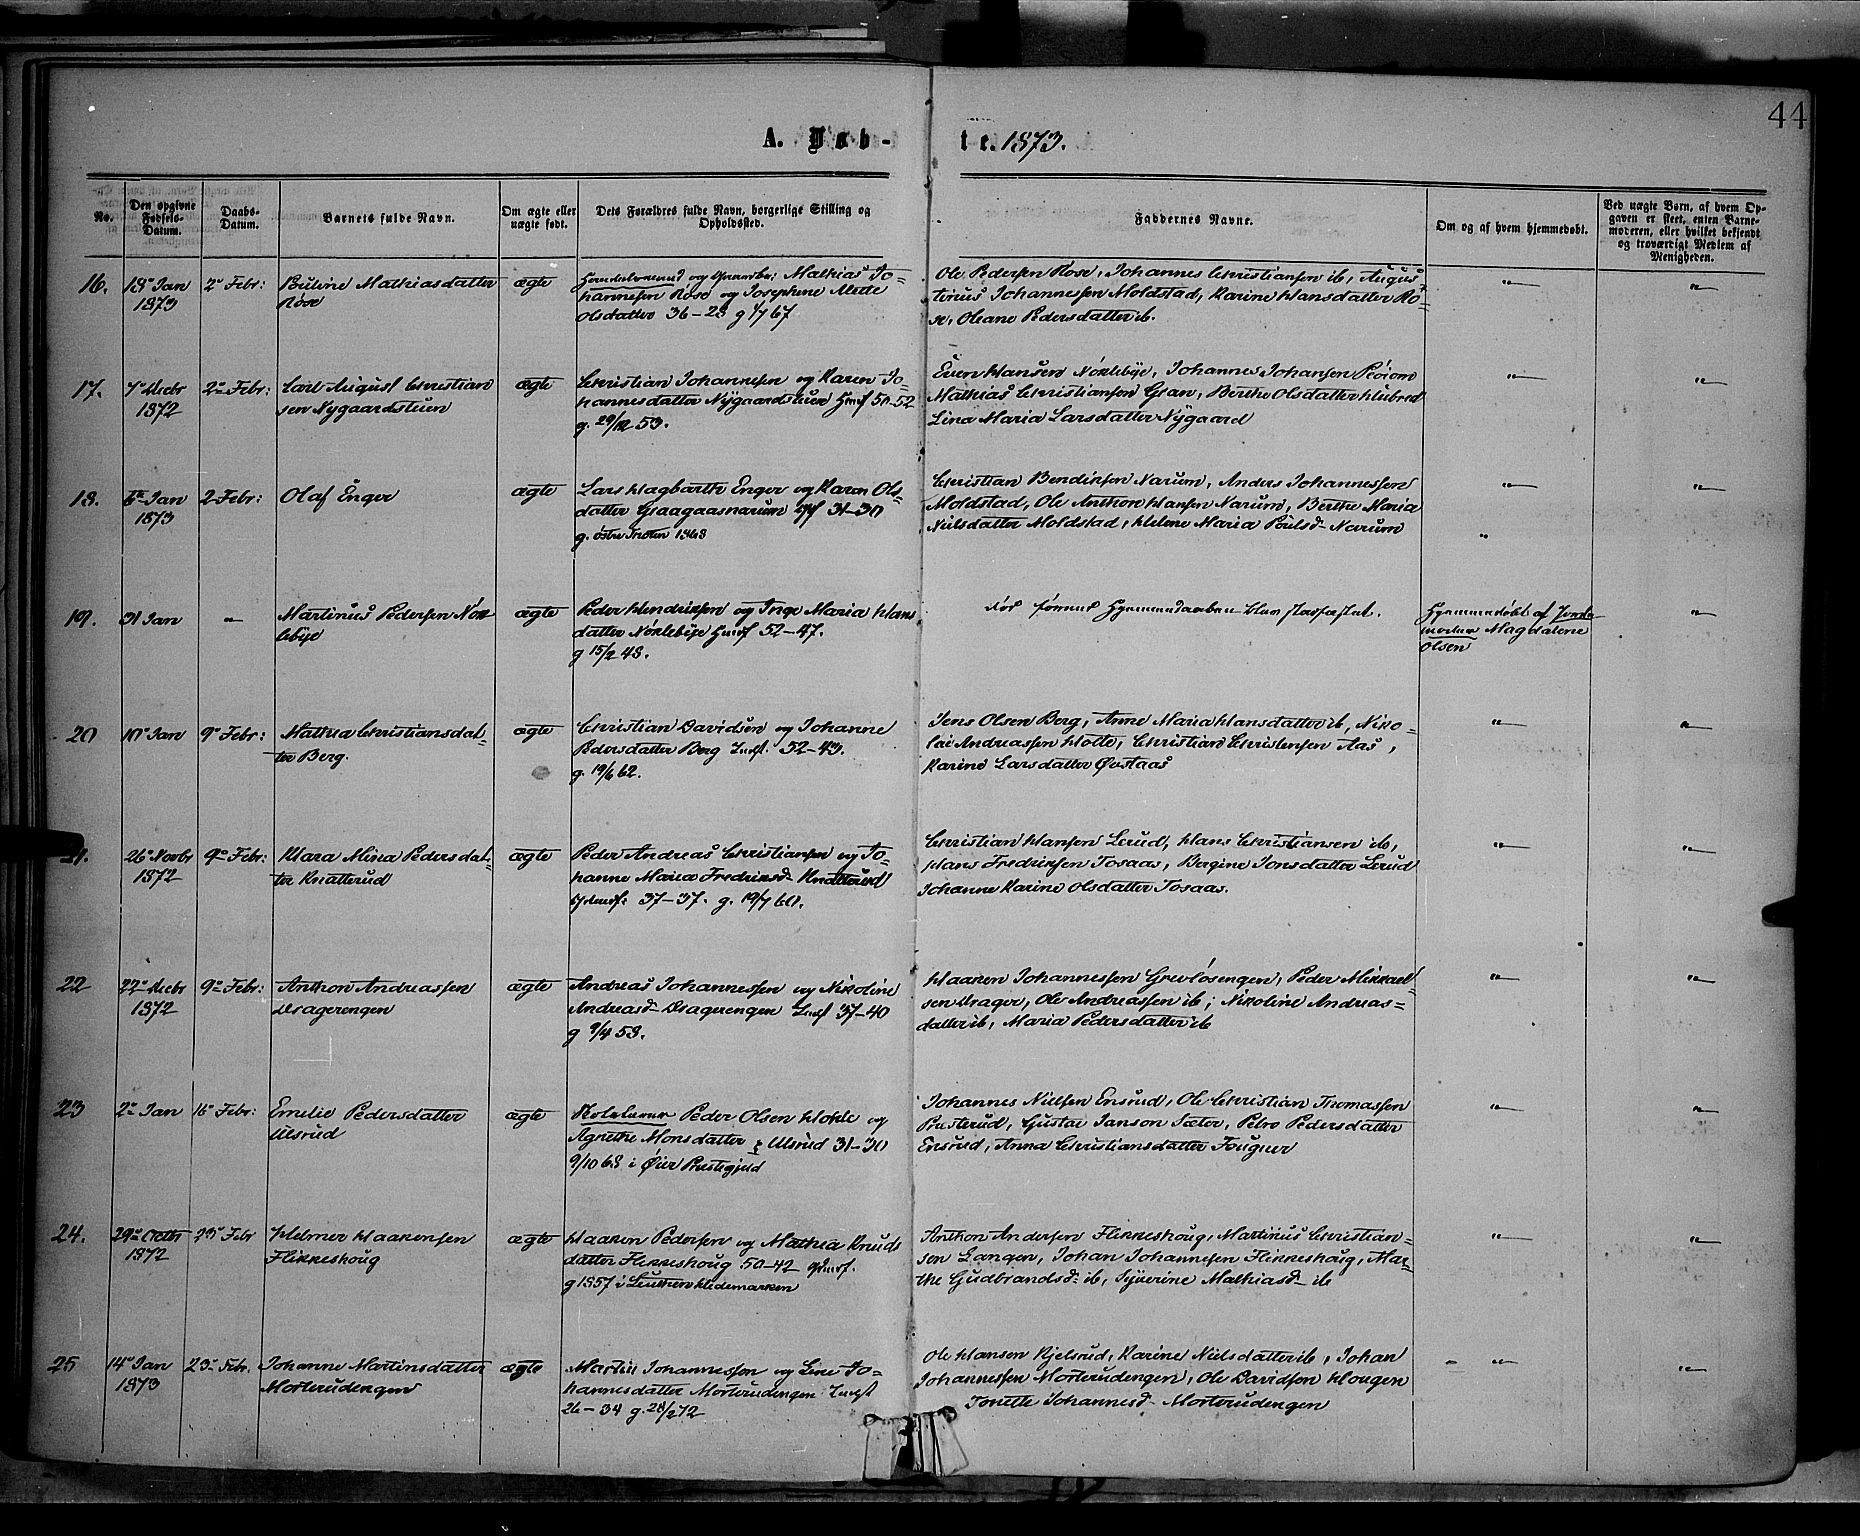 44
A. Døb-
te. 1873.
No.
Den opgivne Fødsels-Datum.
Daabs-Datum.
Barnets fulde Navn.
Om ægte eller uægte født.
Dets Forældres fulde Navn, borgerlige Stilling og Opholdssted.
Faddernes Navne.
Om og af hvem hjemmedøbt.
Ved uægte Børn, af hvem Opgaven er skeet, enten Barnemoderen, eller hvilket bekjendt og troværdigt Medlem af Menigheden.
16.
18 Jan
1873
2 Febr:
Mathiasdatter
Rose
ægte
og Mathias Jo-
hannesen Rose og Josephine Mette
Olsdatter 36-28 g 67
Ole Pedersen Rose, Johannes Christiansen ib, Augus-
tinus Johannesen Moldstad, Karine Hansdatter Ro-
se, Oleane Pedersdatter ib.
17.
7 Decbr
1872
2 Febr:
Carl August Christian
sen Nygaardstuen
ægte
Christian Johannesen og Karen Jo-
hannesdatter Nygaardstuen 50-52
g. 29/12 53.
Even Hansen Nøklebye, Johannes Johansen
Mathias Christiansen Gran, Berthe Olsdatter
Lina Maria Larsdatter Nygaard
18.
6 Jan
1873
2 Febr:
Olaf Enger
ægte
Lars Hagbarth Enger og Karen Ols-
datter Graagaasnarum 31-30
g. østre Thoten 1868
Christian Bendiksen Narum, Anders Johannessen
Moldstad, Ole Anthon Hansen Narum, Berthe Maria
Nielsdatter Moldstad, Helene Maria Poulsd. Narum
19.
31 Jan
"
Martinus Pedersen Nøk
lebye
ægte
Peder Hendriksen og Inge Maria Hans
datter Nøklebye 52-47.
g 15/2 48.
Hjemmedaaben blev stadfæstet.
Hjemmedøbt af
Magdalene
Olsen
20
10 Jan
9 Febr:
Mathea Christiansdat-
ter Berg.
ægte
Christian Davidsen og Johanne
Pedersdatter Berg Indst. 52-43.
g. 19/6 62.
Jens Olsen Berg, Anne Maria Hansdatter ib, Niko-
lai Andreassen Holte, Christian Christensen Aas,
Karine Larsdatter Øvstaas
21.
26 Novbr
1872
9 Febr:
Klara Mina Pedersdat-
ter Knatterud
ægte
Peder Andreas Christiansen og Jo-
hanne Maria Fredriksd. Knatterud
37-37. g. 19/7 60.
Christian Hansen Lerud, Hans Christiansen ib,
Hans Fredriksen Tosaas, Bergine Jonsdatter Lerud
Johanne Karine Olsdatter Tosaas.
22
22 Decbr
1872
9 Febr:
Anthon Andreassen
Dragerengen
ægte
Andreas Johannessen og Nikoline
Andreasd. Dragerengen Indst 37-40
g 9/4 58.
Haaken Johannessen Grevlösengen, Peder Mikkael-
sen Drager, Ole Andreassen ib, Nikoline Andreas-
datter ib, Maria Pedersdatter ib
23
2 Jan
16 Febr:
Emelie Pedersdatter
Ulsrud
ægte
Peder Olsen Holte og
Agnethe Monsdatter Ulsrud 31-30
9/10 68 i Øier Præstegjeld
Johannes Nielsen Ensrud, Ole Christian Thomassen
Prusterud, Gustav Janson Sæter, Petro Pedersdatter
Ensrud, Anna Christiansdatter Fougner
24.
29 Octbr
1872
23 Febr
Helmer Haakensen
Flikkeshoug
ægte
Haaken Pedersen og Mathea Knuds
datter Flikkeshoug 50-42
g 1857 i Hedemarken
Anthon Andersen Flikkeshoug, Martinus Christian-
sen Langen, Johan Johannesen Flikkeshoug, Mar-
the Gudbrandsd. ib, Syverine Mathiasd. ib
25
14 Jan
1873
23 Febr.
Johanne Martinsdatter
Morterudengen
ægte
Martin Johannessen og Lene Jo-
hannesdatter Morterudengen Indst
26-34 g. 28/2 72
Ole Hansen Kjelsrud, Karine Nielsdatter ib, Johan
Johannessen Morterudengen, Ole Davidsen Hougen
Tonette Johannesd. Morterudengen